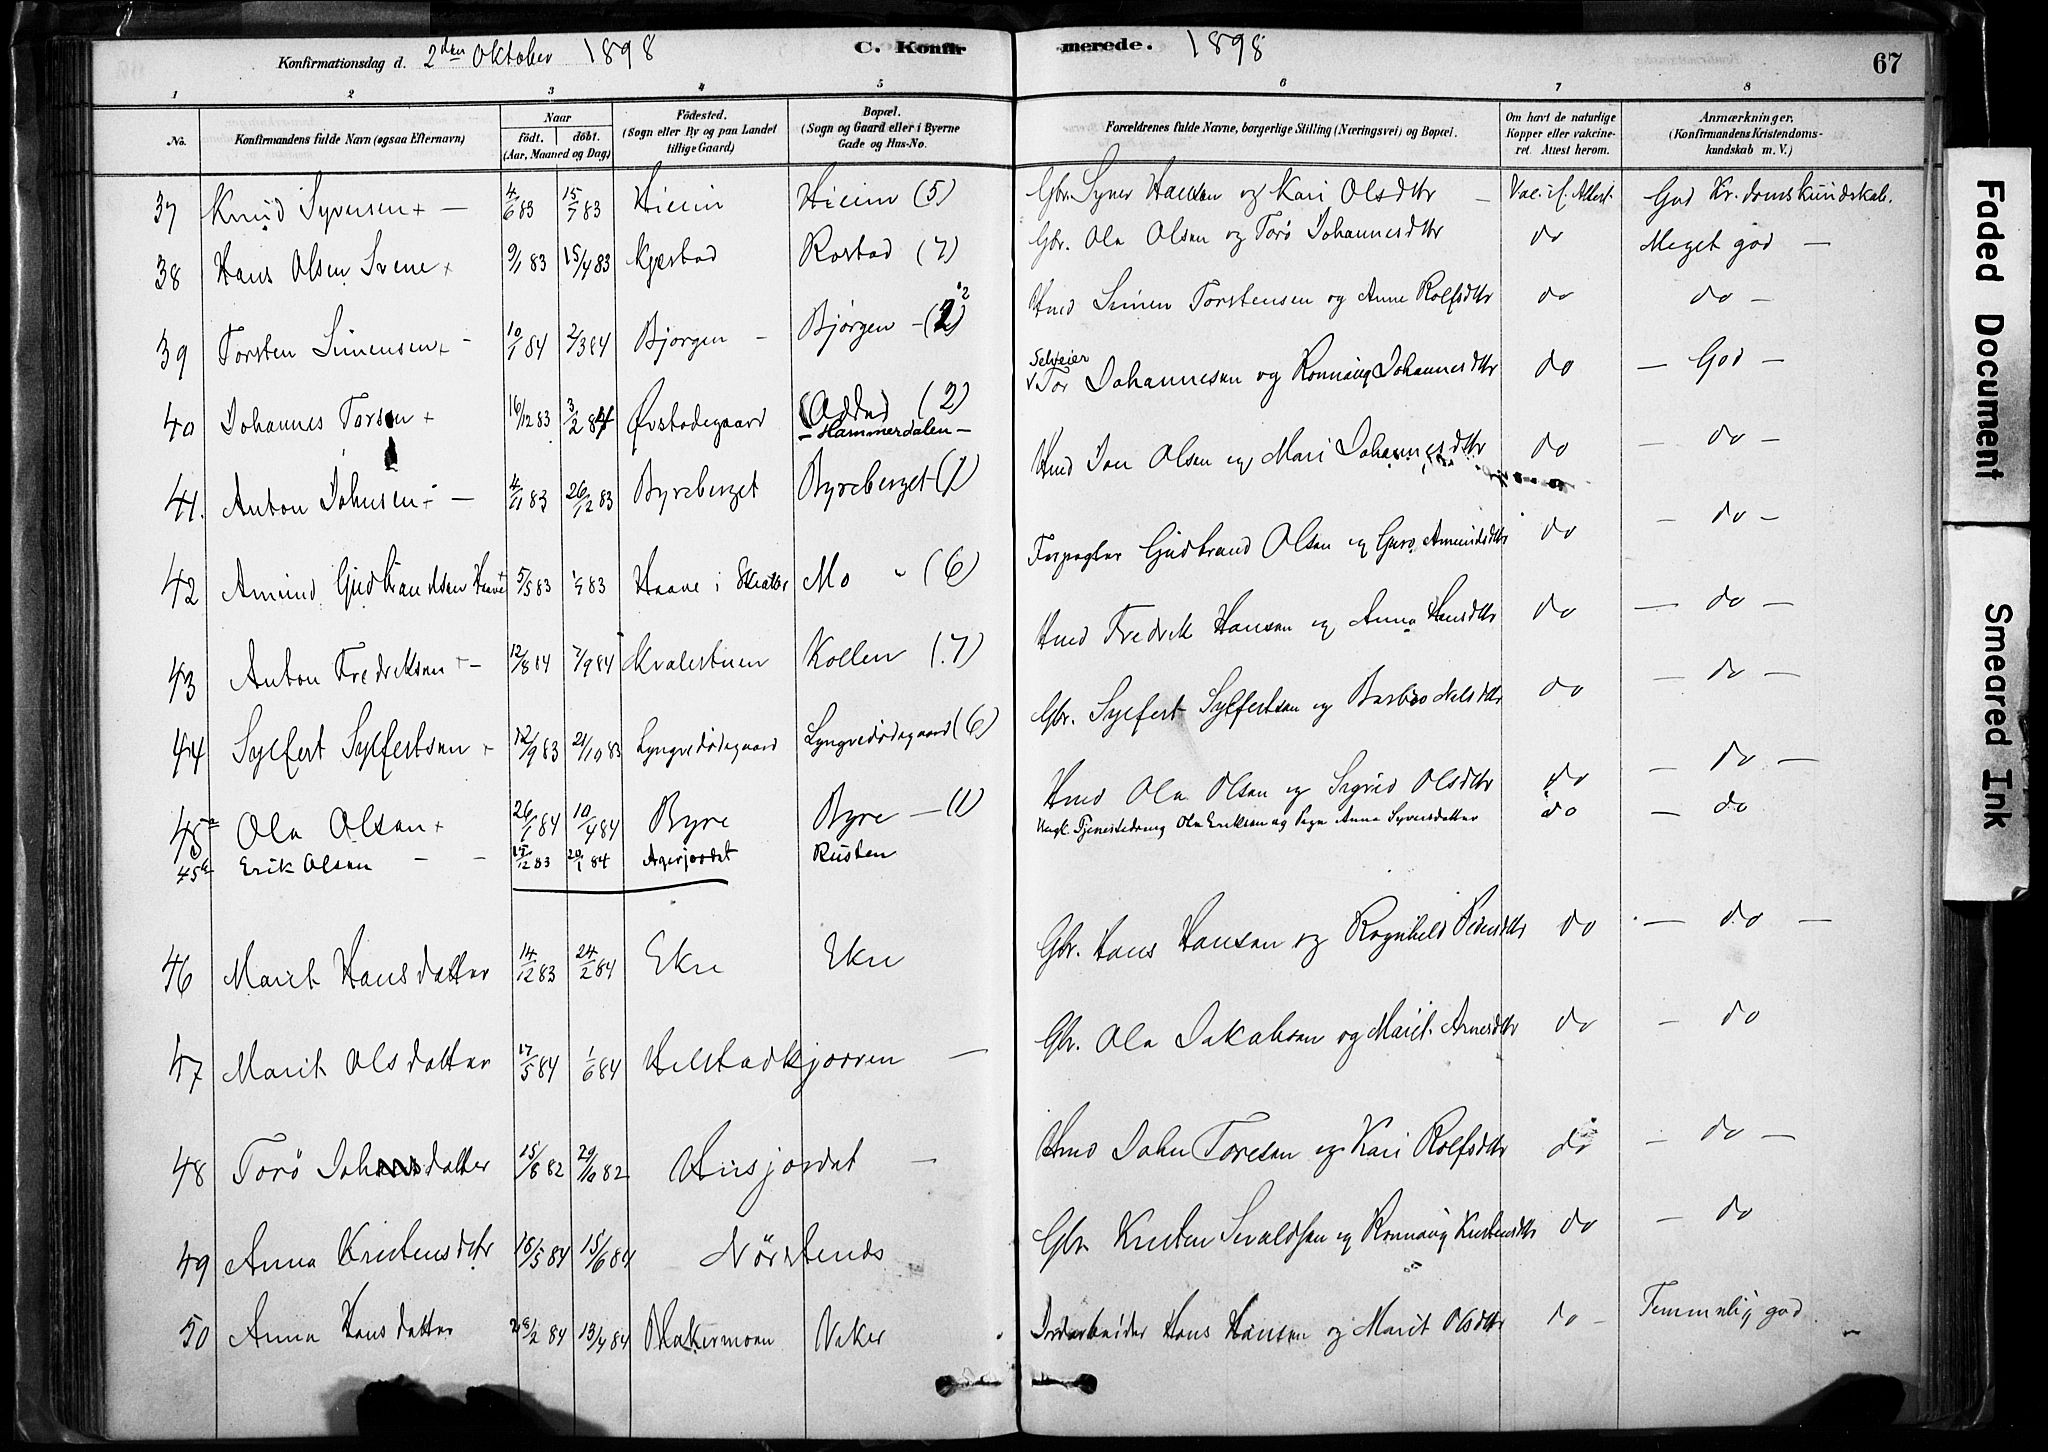 Konfirmationsdag d. 2den Oktober 1898 C. Konfirmerede. 1898 67
1 2 3 4 5 6 7 8
No. Konfirmandens fulde Navn (ogsaa Efternavn) Naar født. døbt. (Aar, Maaned og Dag) Fødested. (Sogn eller By og paa Landet tillige Gaard) Bopæl. (Sogn og Gaard eller i Byerne Gade og Hus-No. Forældrenes fulde Navne, borgerlige Stilling (Næringsvei) og Bopæl. Om havt de naturlige Kopper eller vakcineret. Attest herom. Anmærkninger. (Konfirmandens Kristendomskundskab m. V.)
37 Knud Syversen + — 4/6 83 15/7 83 (5) Gbr. Syver Hansen og Kari Olsdtr — Vac. if. Attest. God Kr.domskundskab.
38 Hans Olsen Svene + 9/1 83 15/4 83 Kjestad Rostad (7) Gbr. Ola Olsen og Torø Johannesdtr do Meget god —
39 Torsten Simensen + - 10/1 84 2/3 84 Bjørgen — Bjørgen - Hmd Simen Torstensen og Anne Rolfsdtr do do —
40 Johannes Torsen + 16/12 83 3/2 84 Øvstødegaard (2) — Hammerdalen — Selveier Tor Johannesen og Rønnaug Johannesdtr do — God —
41. Anton Johnsen + — 4/11 83 26/12 83 Byreberget Byreberget (1) Hmd Jon Olsen og Mari Johannesdtr do — do —
42 Amund Gudbrandsen Haave 5/5 83 83 Haave i Mo (6) Forpagter Gudbrand Olsen og Guro Amundsdtr do — do —
43 Anton Fredriksen + — 12/8 84 7/9 84 Kvalestuen Kollen (7) Hmd Fredrik Hansen og Anna Hansdtr do — do —
44 Sylfert Sylfertsen + 12/9 83 21/10 83 Lyngvedødegaard Lyngvedødegaard (6) Gbr. Sylfert Sylfertsen og Barbro Nelsdtr do — do —
45a Ola Olsen + 26/1 84 10/4 84 Byre Byre — (1) Hmd Ola Olsen og Sigrid Olsdtr do — do —
45b Erik Olsen — — 12 83 20/1 84 Agerjordet Rusten Ungk. Tjenestedreng Ola Eriksen og Pige Anna Syversdatter do — do
46 Marit Hansdatter 14/12 83 24/2 84 Ekre Ekre Gbr. Hans Hansen og Ragnhild Pedersdtr do — do —
47 Marit Olsdatter 17/5 84 1/6 84 Helstadkjærren — Gbr. Ola Jakobsen og Marit Arnesdtr do — do
48 Torø Johnsdatter 15/8 82 29/10 82 Husjordet — Hmd John Toresen og Kari Rolfsdtr do — do —
49 Anna Kristensdtr 18/5 84 15/6 84 Nørstenes Gbr. Kristen Sevaldsen og Rønnaug Kristensdtr do — do
50 Anna Hansdatter 28/2 84 13/4 84 Vakermoen Vaker Jordarbeider Hans Hansen og Marit Olsdtr do — Temmelig god.
Faded Document
Smeared Ink